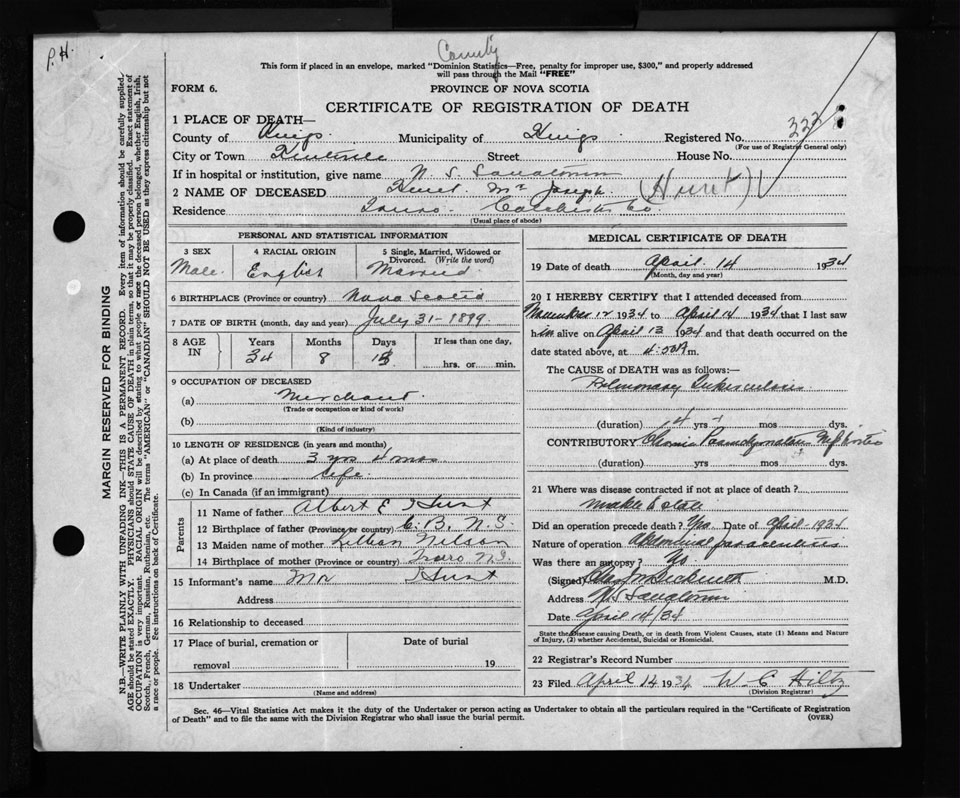 P. H.
County
This form if placed in an envelope, marked "Dominion Statistics—Free, penalty for improper use, $300," and properly addressed
will pass through the Mail "FREE"
FORM 6.
PROVINCE OF NOVA SCOTIA
CERTIFICATE OF REGISTRATION OF DEATH
1 PLACE OF DEATH—
County of Kings Municipality of Kings Registered No. 333
(For use of Registrar General only)
City or Town Kentville Street House No.
If in hospital or institution, give name N. S. Sanatorium
2 NAME OF DECEASED Hunt. Mr Joseph. (Hunt)
Residence Truro. Colchester Co.
(Usual place of abode)
PERSONAL AND STATISTICAL INFORMATION
3 SEX Male.
4 RACIAL ORIGIN English
5 Single, Married, Widowed or Divorced. (Write the word) Married
6 BIRTHPLACE (Province or country) Nova Scotia
7 DATE OF BIRTH (month, day and year) July 31 - 1899.
8 AGE IN Years 34 Months 8 Days If less than one day, hrs. or min.
9 OCCUPATION OF DECEASED
(a) Merchant.
(Trade or occupation or kind of work)
(b)
(Kind of industry)
10 LENGTH OF RESIDENCE (in years and months)
(a) At place of death 3 yrs 4 mos
(b) In province Life.
(c) In Canada (if an immigrant)
Parents
11 Name of father Albert E Hunt
12 Birthplace of father (Province or country) C. B. N. S.
13 Maiden name of mother Lillian Nelson
14 Birthplace of mother (Province or country) Truro N.S.
15 Informant's name Mr Hunt
Address
16 Relationship to deceased
17 Place of burial, cremation or removal
Date of burial 19
18 Undertaker
(Name and address)
MEDICAL CERTIFICATE OF DEATH
19 Date of death April. 14 1934
(Month, day and year)
20 I HEREBY CERTIFY that I attended deceased from
November 12 1934 to April 14 1934 that I last saw
him alive on April 13 1934 and that death occurred on
date stated above, at m.
The CAUSE OF DEATH was as follows:—
Pulmonary Tuberculosis
(duration) yrs mos dys.
CONTRIBUTORY Chronic Parenchymatous Nephritis
(duration) yrs mos dys.
21 Where was disease contracted if not at place of death?
Did an operation precede death? Yes. Date of April - 1934
Nature of operation Abdominal paracentesis
Was there an autopsy? No
(Signed) M.D.
Address N.S. Sanatorium
Date April 14/34
State the Disease causing Death, or in death from Violent Causes, state (1) Means and Nature
of Injury, (2) whether Accidental, Suicidal or Homicidal.
22 Registrar's Record Number
23 Filed April 14 1934 W C Hiltz
(Division Registrar)
Sec. 46—Vital Statistics Act makes it the duty of the Undertaker or person acting as Undertaker to obtain all the particulars required in the "Certificate of Registration
of Death" and to file the same with the Division Registrar who shall issue the burial permit.
(OVER)
MARGIN RESERVED FOR BINDING
N.B.—WRITE PLAINLY WITH UNFADING INK—THIS IS A PERMANENT RECORD. Every item of information should be carefully supplied.
AGE should be stated EXACTLY. PHYSICIANS should STATE CAUSE OF DEATH in plain terms, so that it may be properly classified. Exact statement of
OCCUPATION is very important. RACIAL ORIGIN will be described by stating to what people or race the deceased person belonged, whether English, Irish,
Scotch, French, German, Russian, Ruthenian, etc. The terms "AMERICAN" or "CANADIAN" SHOULD NOT BE USED as they express citizenship but not
a race or people. See instructions on back of Certificate.